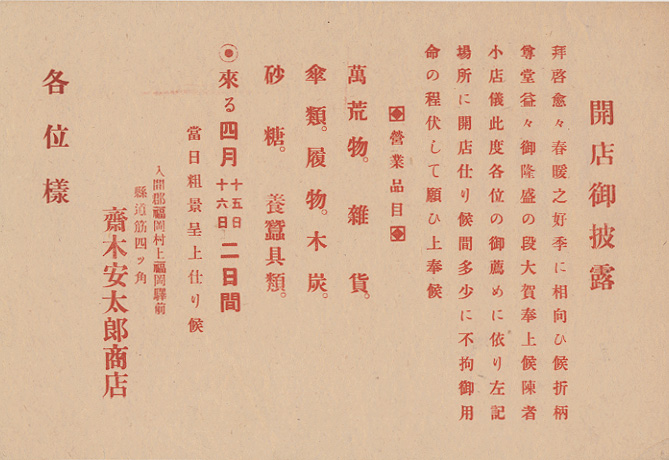 開店御披露
拝啓愈々春暖之好季に相向ひ候折柄
尊堂益々御隆盛の段大賀奉上候陳者
小店儀此度各位の御薦めに依り左記
場所に開店仕り候間多少に不拘御用
命の程伏して願ひ上奉候
営業品目
萬荒物。雑貨。
傘類。履物。木炭。
砂糖。養蠶具類。
來る四月十五日十六日二日間
當日粗景呈上仕り候
入間郡福岡村上福岡驛前
縣道筋四ッ角
齋木安太郎商店
各位樣